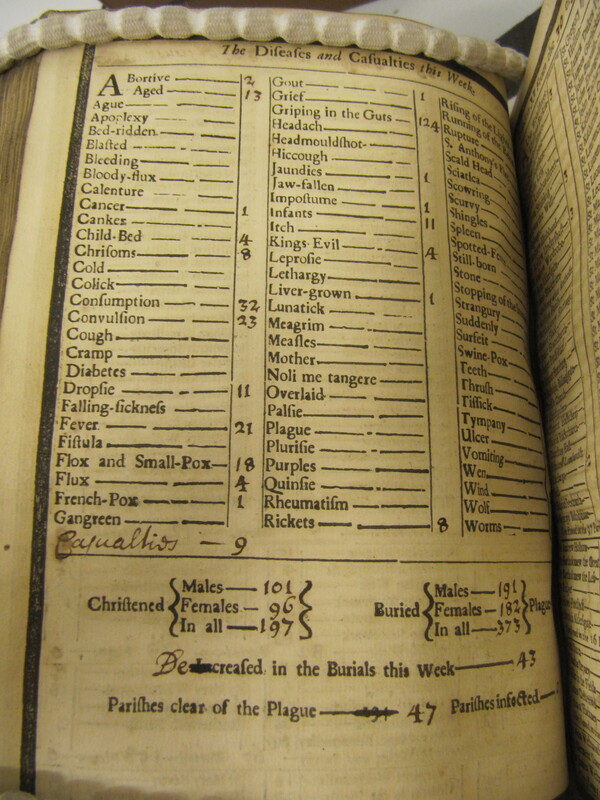 The Diſeaſes and Caſualties this Week.
ABortive 2
Aged 13
Ague
Apoplexy
Bed-ridden
Blaſted
Bleeding
Bloody-flux
Calenture
Cancer 1
Canker
Child-Bed 4
Chriſoms 8
Cold
Colick
Conſumption 32
Convulſion 23
Cough
Cramp
Diabetes
Dropſie 11
Falling-ſickneſs
Fever 21
Fiſtula
Flox and Small-Pox 18
Flux 4
French-Pox 1
Gangreen
Casualtios — 9
Gout
Grief 1
Griping in the Guts 124
Headach
Headmouldſhot
Hiccough
Jaundies 1
Jaw-fallen
Impoſtume 1
Infants 11
Itch
Kings-Evil 4
Leproſie
Lethargy
Liver-grown 1
Lunatick
Meagrim
Meaſles
Mother
Noli me tangere
Overlaid
Palſie
Plague
Pluriſie
Purples
Quinſie
Rheumatiſm
Rickets 8
Riſing of the
Running of the
Rupture
S. Anthony's
Scald Head
Sciatica
Scowring
Scurvy
Shingles
Spleen
Spotted-Fe
Still-born
Stone
Stopping of the
Strangury
Suddenly
Surfeit
Swine-Pox
Teeth
Thruſh
Tiſſick
Tympany
Ulcer
Vomiting
Wen
Wind
Wolf
Worms
Chriſtened { Males — 101 Females — 96 In all — 197 }
Buried { Males — 191 Females — 182 In all — 373 } Plague
Decreaſed in the Burials this Week — 43
Pariſhes clear of the Plague — 47 Pariſhes infected —